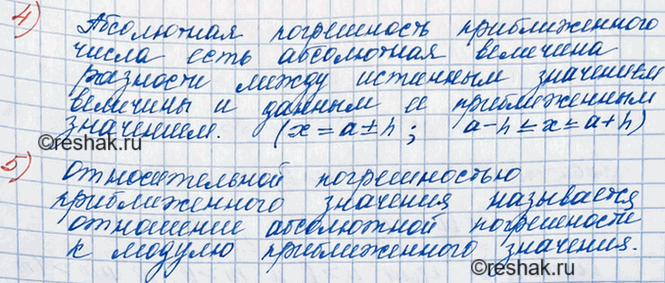 4) Абсолютная погрешность приближенного
числа есть абсолютная величина
разности между истинным значением
величины и данным ее приближенным
значением. (x = a ± h; a-h ≤ x ≤ a+h)
5) Относительной погрешностью
приближенного значения называется
отношение абсолютной погрешности
к модулю приближенного значения.
©reshak.ru
©reshak.ru
©reshak.ru